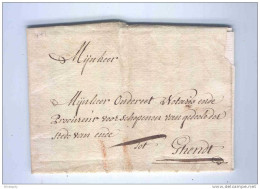 Mijnheer
Mijnheer Onderent Notaris ende
Procureur voor schepenen van gedeele der
stede van ende
tot Ghendt